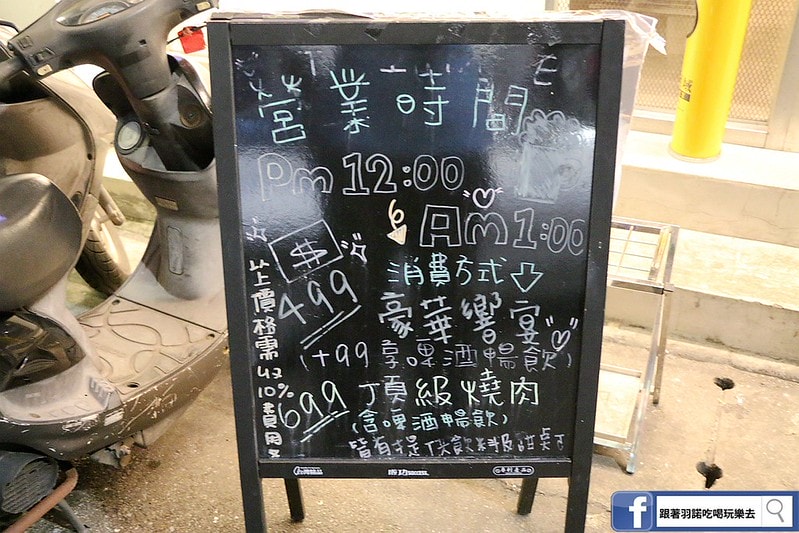 營業時間
Pm 12:00
Am 1:00
$
消費方式
499 豪華饗宴
(+99 享啤酒暢飲)
699 頂級燒肉
(含啤酒暢飲)
皆有提供飲料及甜點
以上價格需收10%費用
跟著羽諾吃喝玩樂去